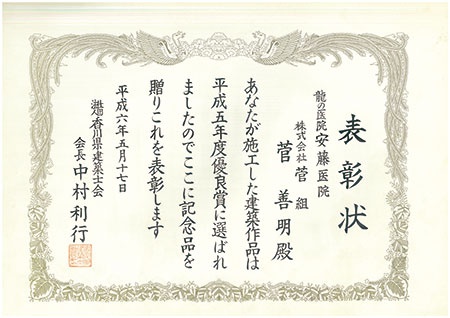 表彰状
龍の医院 安藤医院
株式会社 菅組
菅 善明殿
あなたが施工した建築作品は
平成五年度優良賞に選ばれ
ましたのでここに記念品を
贈りこれを表彰します
平成六年五月十七日
香川県建築士会
会長 中村利行